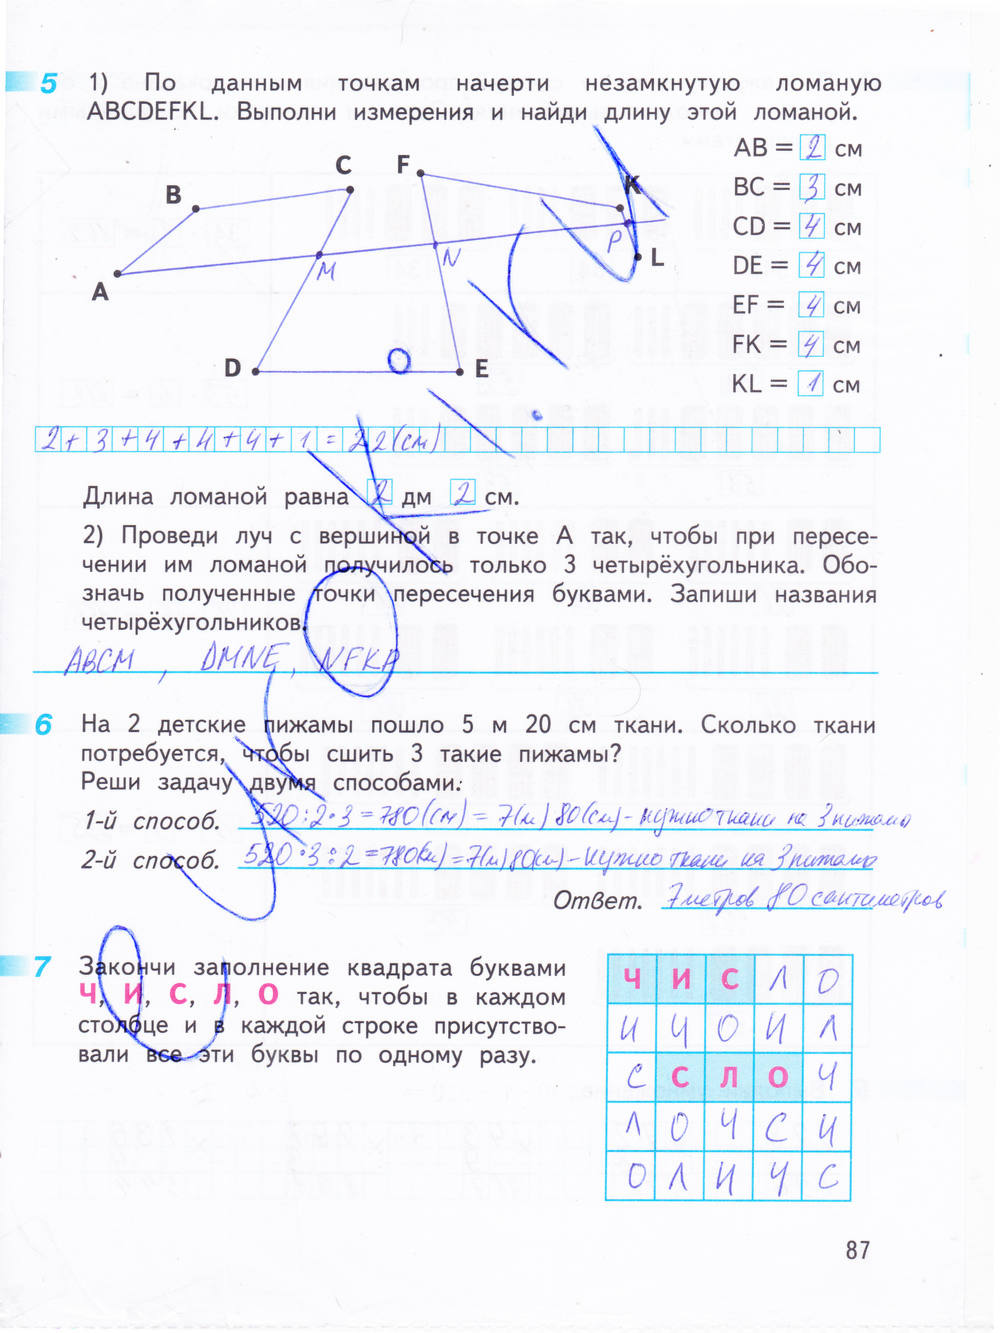 5 1) По данным точкам начерти незамкнутую ломаную
ABCDEFKL. Выполни измерения и найди длину этой ломаной.
AB = 2 см
BC = 3 см
CD = 4 см
DE = 4 см
EF = 4 см
FK = 4 см
KL = 1 см
B C F K
A M N P L
D E
2+3+4+4+4+1=22(см)
Длина ломаной равна 2 дм 2 см.
2) Проведи луч с вершиной в точке А так, чтобы при пересе-
чении им ломаной получилось только 3 четырёхугольника. Обо-
значь полученные точки пересечения буквами. Запиши названия
четырёхугольников.
ABCM, DMNE, NFKP
6 На 2 детские пижамы пошло 5 м 20 см ткани. Сколько ткани
потребуется, чтобы сшить 3 такие пижамы?
Реши задачу двумя способами:
1-й способ. 520:2·3=780(см)=7(м)80(см)-нужно ткани на 3 пижамы
2-й способ. 520·3:2=780(см)=7(м)80(см)-нужно ткани на 3 пижамы
Ответ. 7 метров 80 сантиметров
7 Закончи заполнение квадрата буквами
Ч, И, С, Л, О так, чтобы в каждом
столбце и в каждой строке присутство-
вали все эти буквы по одному разу.
Ч И С Л О
И Ч О И Л
С С Л О Ч
Л О Ч С И
О Л И Ч С
87